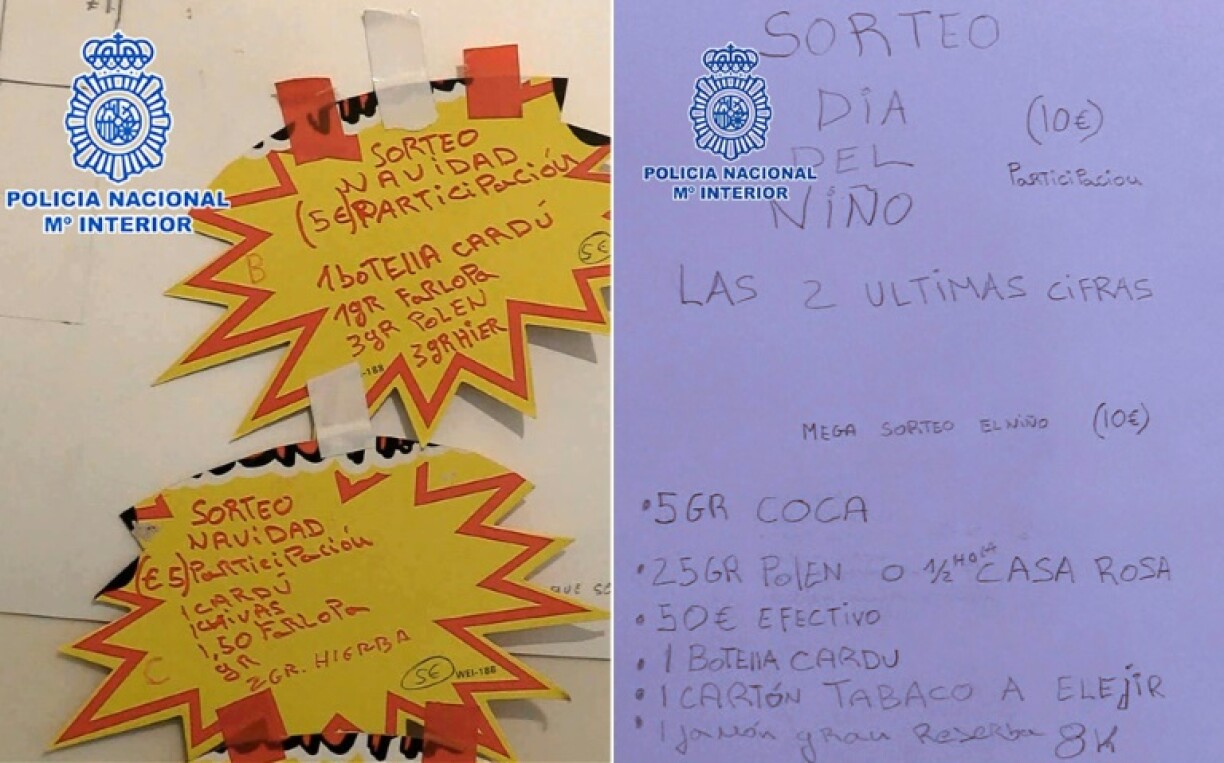 POLICIA NACIONAL
Mº INTERIOR
SORTEO
NAVIDAD
(5€) PARTICIPACIÓN
1 BOTELLA CARDÚ
5€
B
1gR FARLOPA
3gR POLEN
3gR HIER
-188
SORTEO
NAVIDAD
(€5) PARTICIPACIÓN
1 CARDÚ
1 CHIVAS
1,50 FARLOPA
gR
2GR. HIERBA
C
5€
WEI-188
QUE SO
POLICIA NACIONAL
Mº INTERIOR
SORTEO
DIA
(10€)
DEL
PARTICIPACION
NIÑO
LAS 2 ULTIMAS CIFRAS
MEGA SORTEO EL NIÑO (10€)
• 5GR COCA
• 25GR POLEN O 1/2 CASA ROSA
• 50€ EFECTIVO
• 1 BOTELLA CARDU
• 1 CARTÓN TABACO A ELEJIR
• 1 Jamón gran Reserba 8K